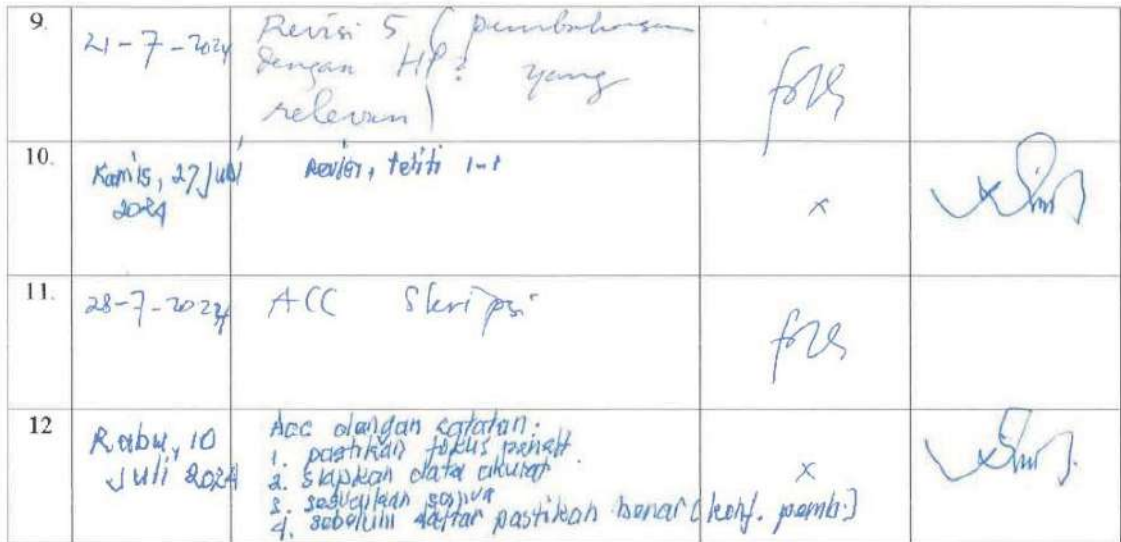 9.
21-7-2024
Revisi 5 (pembahasan
dengan HP2 yang
relevan)
10.
Kamis, 27 Juni
2024
Revisi, teliti
11.
28-7-2024
ACC Skripsi
12
Rabu, 10
Juli 2024
Acc dengan catatan:
1. pastikan fokus penelt
2. siapkan data akurat
3. sesuaikan
4. sebelum daftar pastikan benar (konf. pemb.)